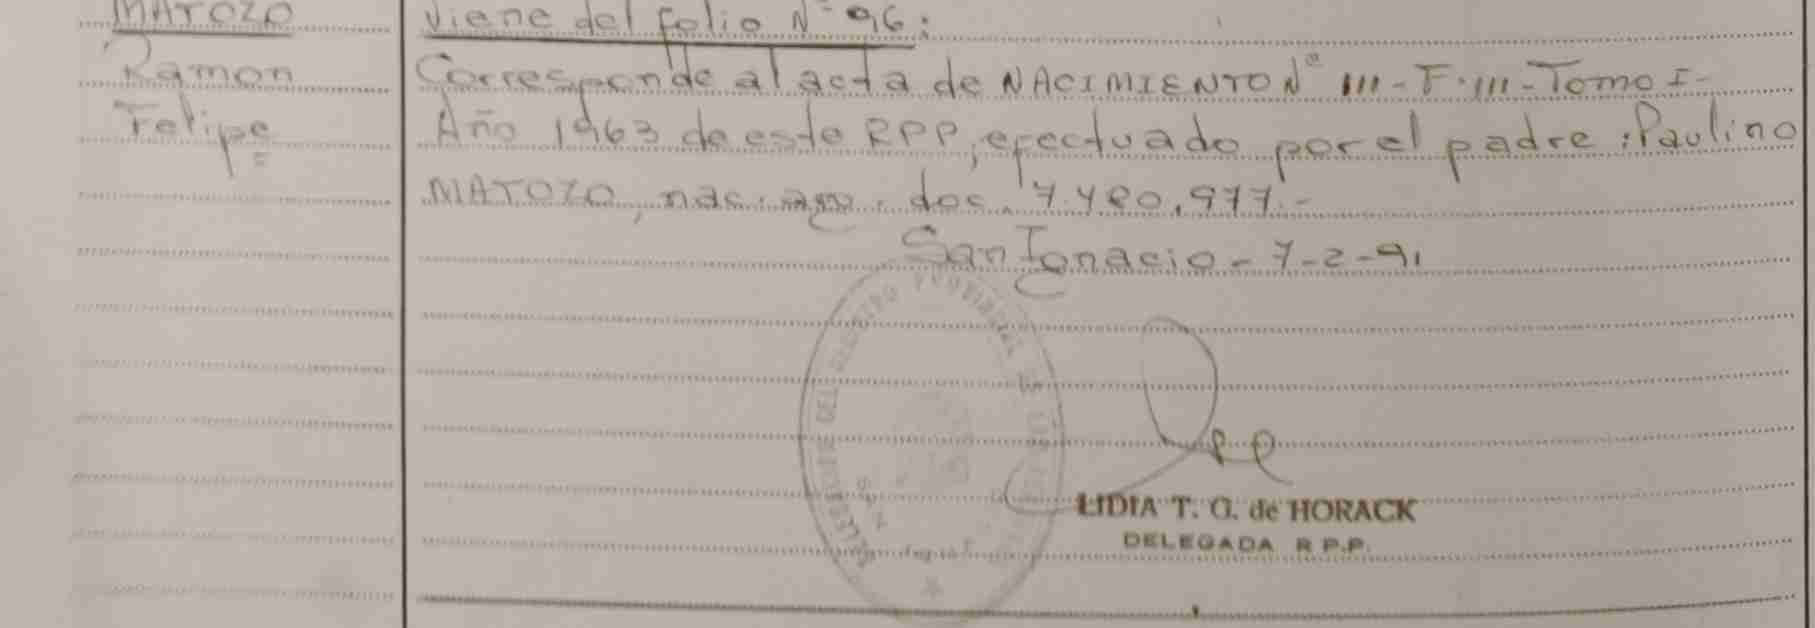 MATOZO
Ramon
Felipe
Viene del folio Nº 96:
Corresponde al acta de NACIMIENTO Nº 111-F.111-Tomo I-
Año 1963 de este RPP, efectuado por el padre: Paulino
MATOZO, nac. arg. doc. 7.480.977.-
San Ignacio - 7-2-91
DEL REGISTRO PROVINCIAL DE LAS
LIDIA T. G. de HORACK
DELEGADA R P.P.